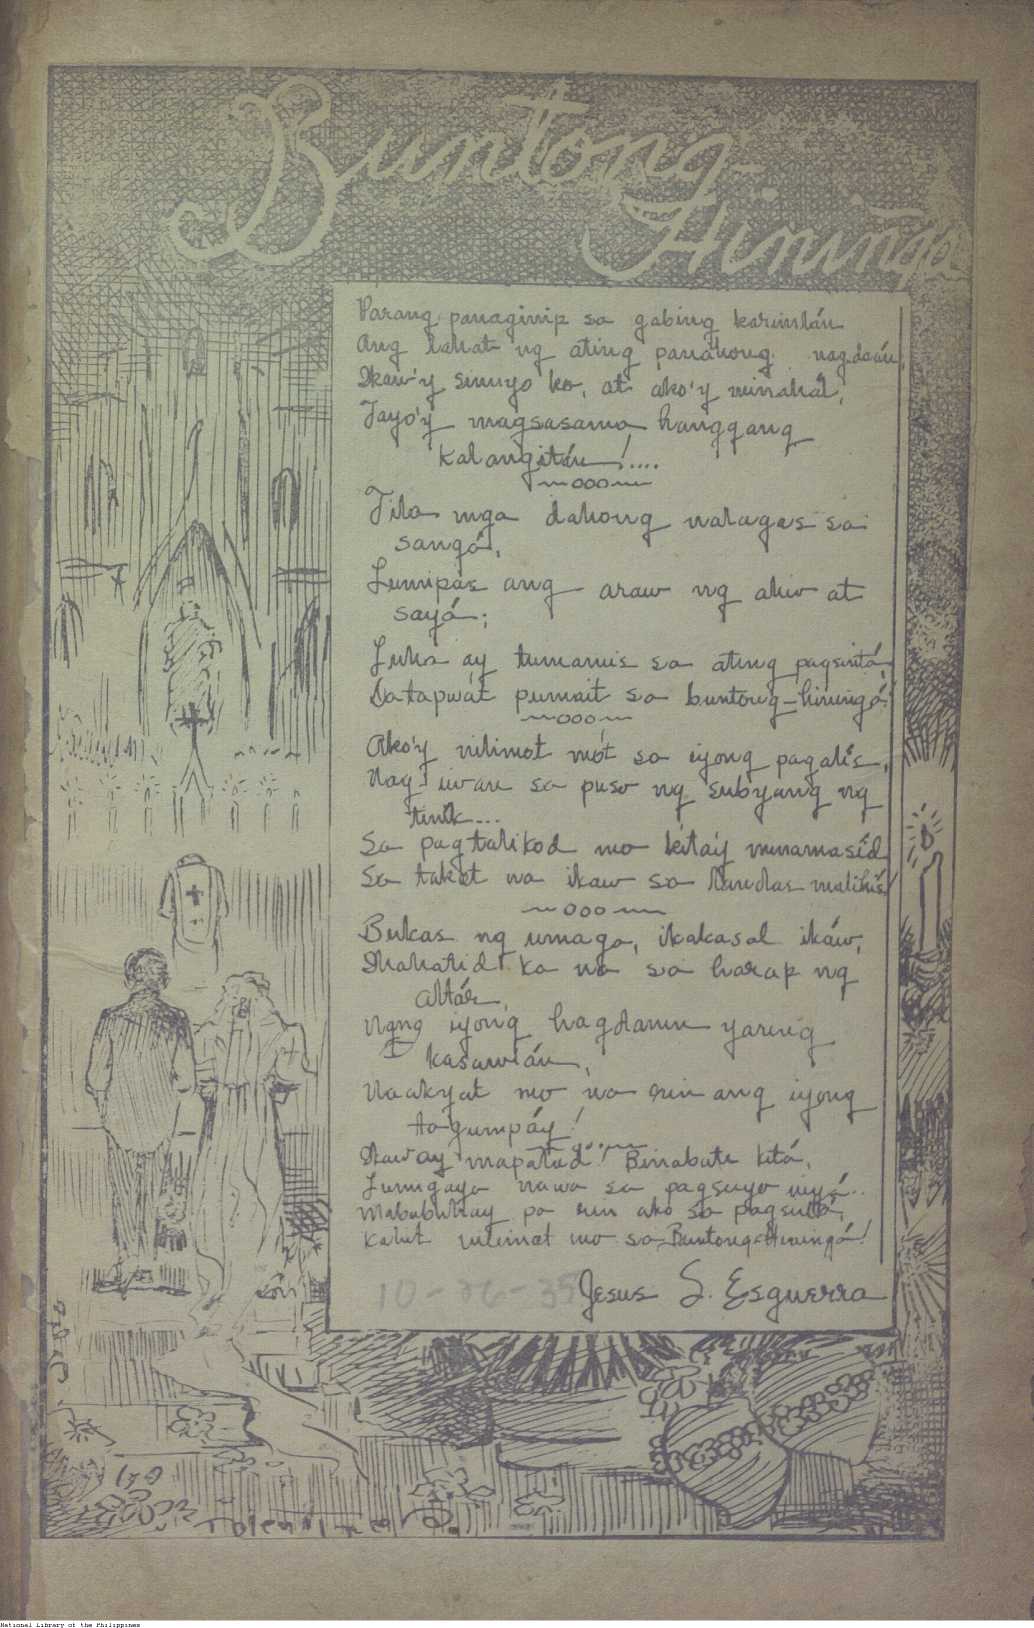 Buntong-
Hininga
Parang panaginip sa gabing karimlán
Ang lahat ng ating panahong nagdaán,
Ikaw'y sinuyo ko, at ako'y minahál,
Tayo'y magsasama hanggang
kalangitán!....
~ooo~
Tila mga dahong nalagas sa
sangá,
Lumipas ang araw ng aliw at
sayá;
Luha ay tumamis sa ating pagsintá,
Datapwát pumait sa buntong-hiningá!
~ooo~
Ako'y nilimot mót sa iyong pagalís,
Nag-iwan sa puso ng subyang ng
tiník...
Sa pagtalikod mo kitáy minamasíd
Sa takot na ikaw sa landas malihís!
~ooo~
Bukas ng umaga, ikakasal ikáw,
Mahahatid ka na sa harap ng
altár,
Ngng iyong hagdanin yaring
kasawián,
Naakyat mo na rin ang iyong
tagumpáy!
Ikaw ay mapalad! Binabati kitá,
Lumigaya nawa sa pagsuyo niyá...
Mabubuhay pa rin ako sa pagsintá,
Kahit nilimot mo sa Buntong-Hiningá!
10-26-35
Jesus S. Esguerra
Tolentino
National Library of the Philippines